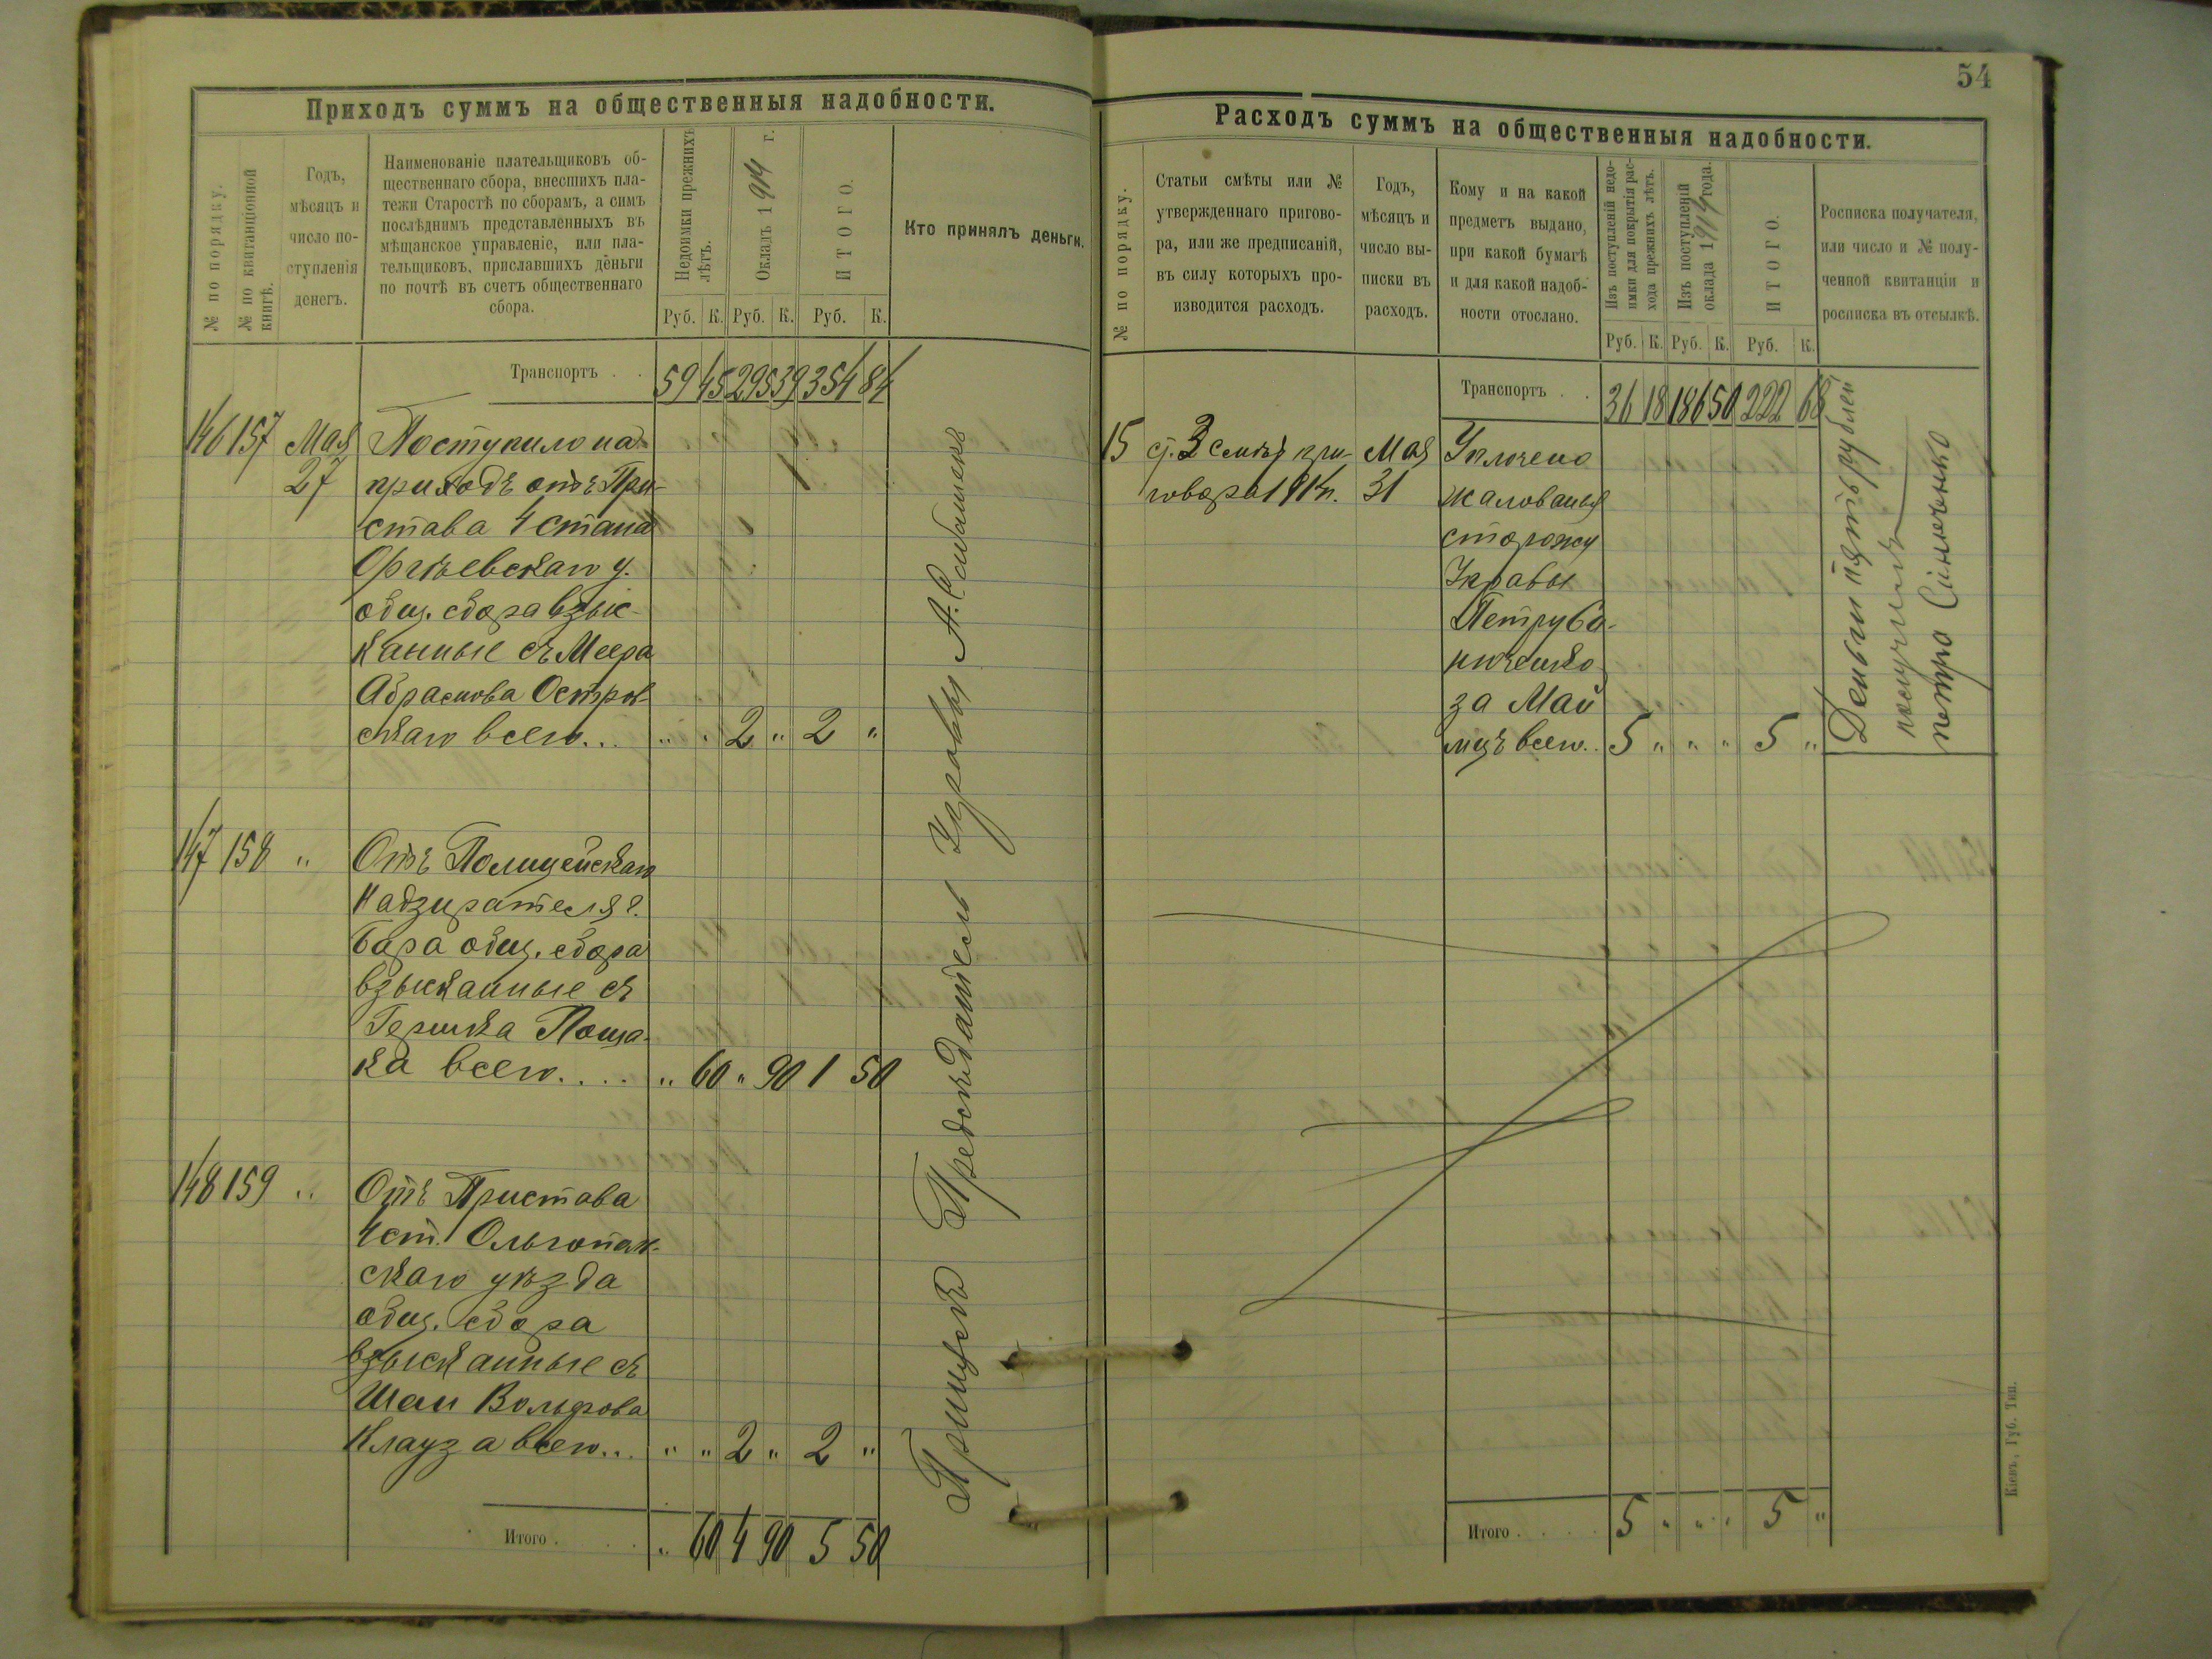 Приходъ суммъ на общественныя надобности.
№ по порядку.
№ по квитанціонной
книгѣ.
Годъ,
мѣсяцъ и
число по-
ступленія
денегъ.
Наименованіе плательщиковъ об-
щественнаго сбора, внесшихъ пла-
тежи Старостѣ по сборамъ, а симъ
послѣднимъ представленныхъ въ
мѣщанское управленіе, или пла-
тельщиковъ, приславшихъ деньги
по почтѣ въ счетъ общественнаго
сбора.
Недоимки прежнихъ
лѣтъ.
Окладъ 1914 г.
ИТОГО.
Кто принялъ деньги.
Руб. К. Руб. К. Руб. К.
Транспортъ . . 59 45 295 39 354 84
146 157 Мая Поступило на
27 приходъ отъ При-
става 4 стана
Оргѣевскаго у.
общ. сбора взыс-
канные съ Меера
Абрамова Остров-
скаго всего... " " 2 " 2 "
147 158 " Отъ Полицейскаго
Надзирателя г.
Бара общ. сбора
взысканные съ
Гершка Поша-
ка всего.... " 60 " 90 1 50
148 159 " Отъ Пристава
4 ст. Ольгопол-
скаго уѣзда
общ. сбора
взысканные съ
Шаи Вольфова
Клауза всего... " " 2 " 2 "
Итого . . . . " 60 4 90 5 50
Предсѣдатель Управы А.
54
Расходъ суммъ на общественныя надобности.
№ по порядку.
Статьи смѣты или №
утвержденнаго пригово-
ра, или же предписаній,
въ силу которыхъ про-
изводится расходъ.
Годъ,
мѣсяцъ и
число вы-
писки въ
расходъ.
Кому и на какой
предметъ выдано,
при какой бумагѣ
и для какой надоб-
ности отослано.
Изъ поступленій недо-
имки для покрытія рас-
хода прежнихъ лѣтъ.
Изъ поступленій
оклада 1914 года.
ИТОГО.
Росписка получателя,
или число и № полу-
ченной квитанціи и
росписка въ отсылкѣ.
Руб. К. Руб. К. Руб. К.
Транспортъ . . 36 18 186 50 222 68
15 ст. 3 смѣты при- Мая Уплочено
говора 1914 г. 31 жалованья
сторожу
Управы
Петру Си-
ниченко
за Май
мцъ всего.. 5 " " " 5 "
Деньги пять рублей
получилъ
петро Синиченко
Итого . . . . 5 " " " 5 "
Кіевъ, Губ. Тип.